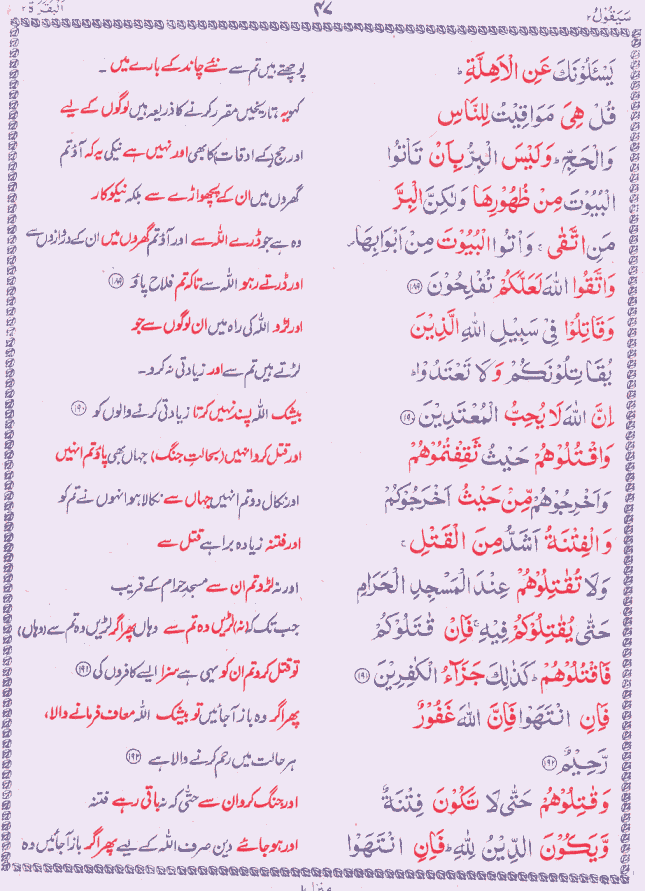 سَيَقُولُ ٢
٤٧
اَلْبَقَرَة ٢
يَسْـَٔلُوْنَكَ عَنِ الْاَهِلَّةِ ؕ
پوچھتے ہیں تم سے نئے چاند کے بارے میں ۔
قُلْ هِيَ مَوَاقِيْتُ لِلنَّاسِ
کہو یہ تاریخیں مقرر کرنے کا ذریعہ ہیں لوگوں کے لیے
وَالْحَجِّ ؕ وَلَيْسَ الْبِرُّ بِاَنْ تَاْتُوا
اور حج (کے اوقات) کا بھی اور نہیں ہے نیکی یہ کہ آؤ تم
الْبُيُوْتَ مِنْ ظُهُوْرِهَا وَلٰكِنَّ الْبِرَّ
گھروں میں ان کے پچھواڑے سے بلکہ نیکوکار
مَنِ اتَّقٰى ۚ وَاْتُوا الْبُيُوْتَ مِنْ اَبْوَابِهَا
وہ ہے جو ڈرے اللہ سے اور آؤ تم گھروں میں ان کے دروازوں سے
وَاتَّقُوا اللهَ لَعَلَّكُمْ تُفْلِحُوْنَ ١٨٩
اور ڈرتے رہو اللہ سے تاکہ تم فلاح پاؤ ١٨٩
وَقَاتِلُوْا فِيْ سَبِيْلِ اللهِ الَّذِيْنَ
اور لڑو اللہ کی راہ میں ان لوگوں سے جو
يُقَاتِلُوْنَكُمْ وَلَا تَعْتَدُوْا ؕ
لڑتے ہیں تم سے اور زیادتی نہ کرو ۔
اِنَّ اللهَ لَا يُحِبُّ الْمُعْتَدِيْنَ ١٩٠
بیشک اللہ پسند نہیں کرتا زیادتی کرنے والوں کو ١٩٠
وَاقْتُلُوْهُمْ حَيْثُ ثَقِفْتُمُوْهُمْ
اور قتل کرو انہیں (بحالتِ جنگ) جہاں بھی پاؤ تم انہیں
وَاَخْرِجُوْهُمْ مِّنْ حَيْثُ اَخْرَجُوْكُمْ
اور نکال دو تم انہیں جہاں سے نکالا ہو انہوں نے تم کو
وَالْفِتْنَةُ اَشَدُّ مِنَ الْقَتْلِ ۚ
اور فتنہ زیادہ برا ہے قتل سے
وَلَا تُقٰتِلُوْهُمْ عِنْدَ الْمَسْجِدِ الْحَرَامِ
اور نہ لڑو تم ان سے مسجدِ حرام کے قریب
حَتّٰى يُقٰتِلُوْكُمْ فِيْهِ ۚ فَاِنْ قٰتَلُوْكُمْ
جب تک کہ (نہ) لڑیں وہ تم سے وہاں پھر اگر لڑیں وہ تم سے (وہاں)
فَاقْتُلُوْهُمْ ؕ كَذٰلِكَ جَزَآءُ الْكٰفِرِيْنَ ١٩١
تو قتل کرو تم ان کو یہی ہے سزا ایسے کافروں کی ١٩١
فَاِنِ انْتَهَوْا فَاِنَّ اللهَ غَفُوْرٌ
پھر اگر وہ باز آجائیں تو بیشک اللہ معاف فرمانے والا،
رَّحِيْمٌ ١٩٢
ہر حالت میں رحم کرنے والا ہے ١٩٢
وَقٰتِلُوْهُمْ حَتّٰى لَا تَكُوْنَ فِتْنَةٌ
اور جنگ کرو ان سے حتّٰی کہ نہ باقی رہے فتنہ
وَّيَكُوْنَ الدِّيْنُ لِلّٰهِ ؕ فَاِنِ انْتَهَوْا
اور ہو جائے دین صرف اللہ کے لیے پھر اگر باز آجائیں وہ